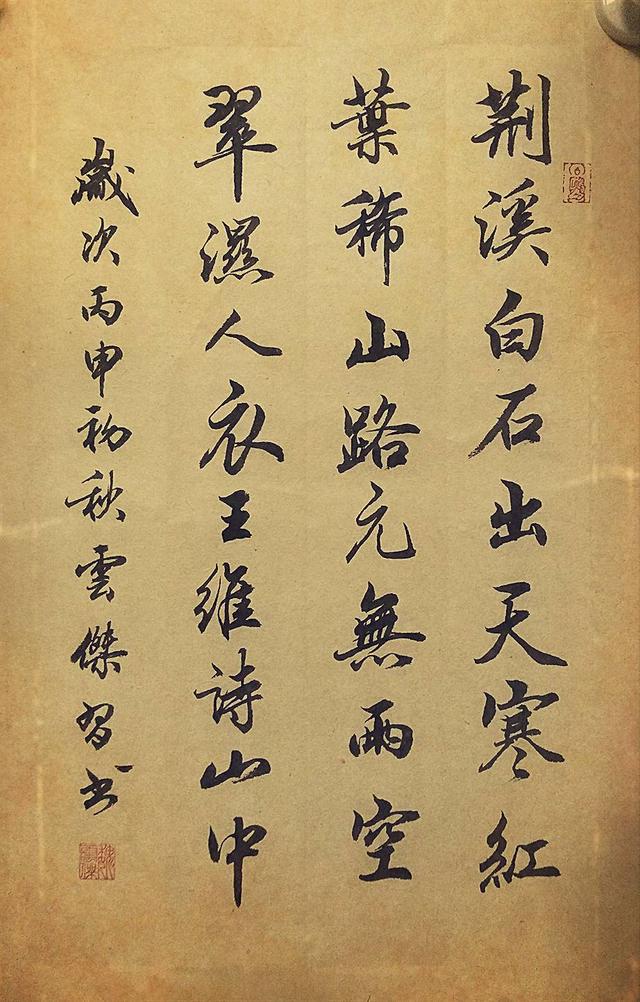 荆溪白石出天寒紅
葉稀山路元無雨空
翠濕人衣王維詩山中
歲次丙申初秋雲傑習书